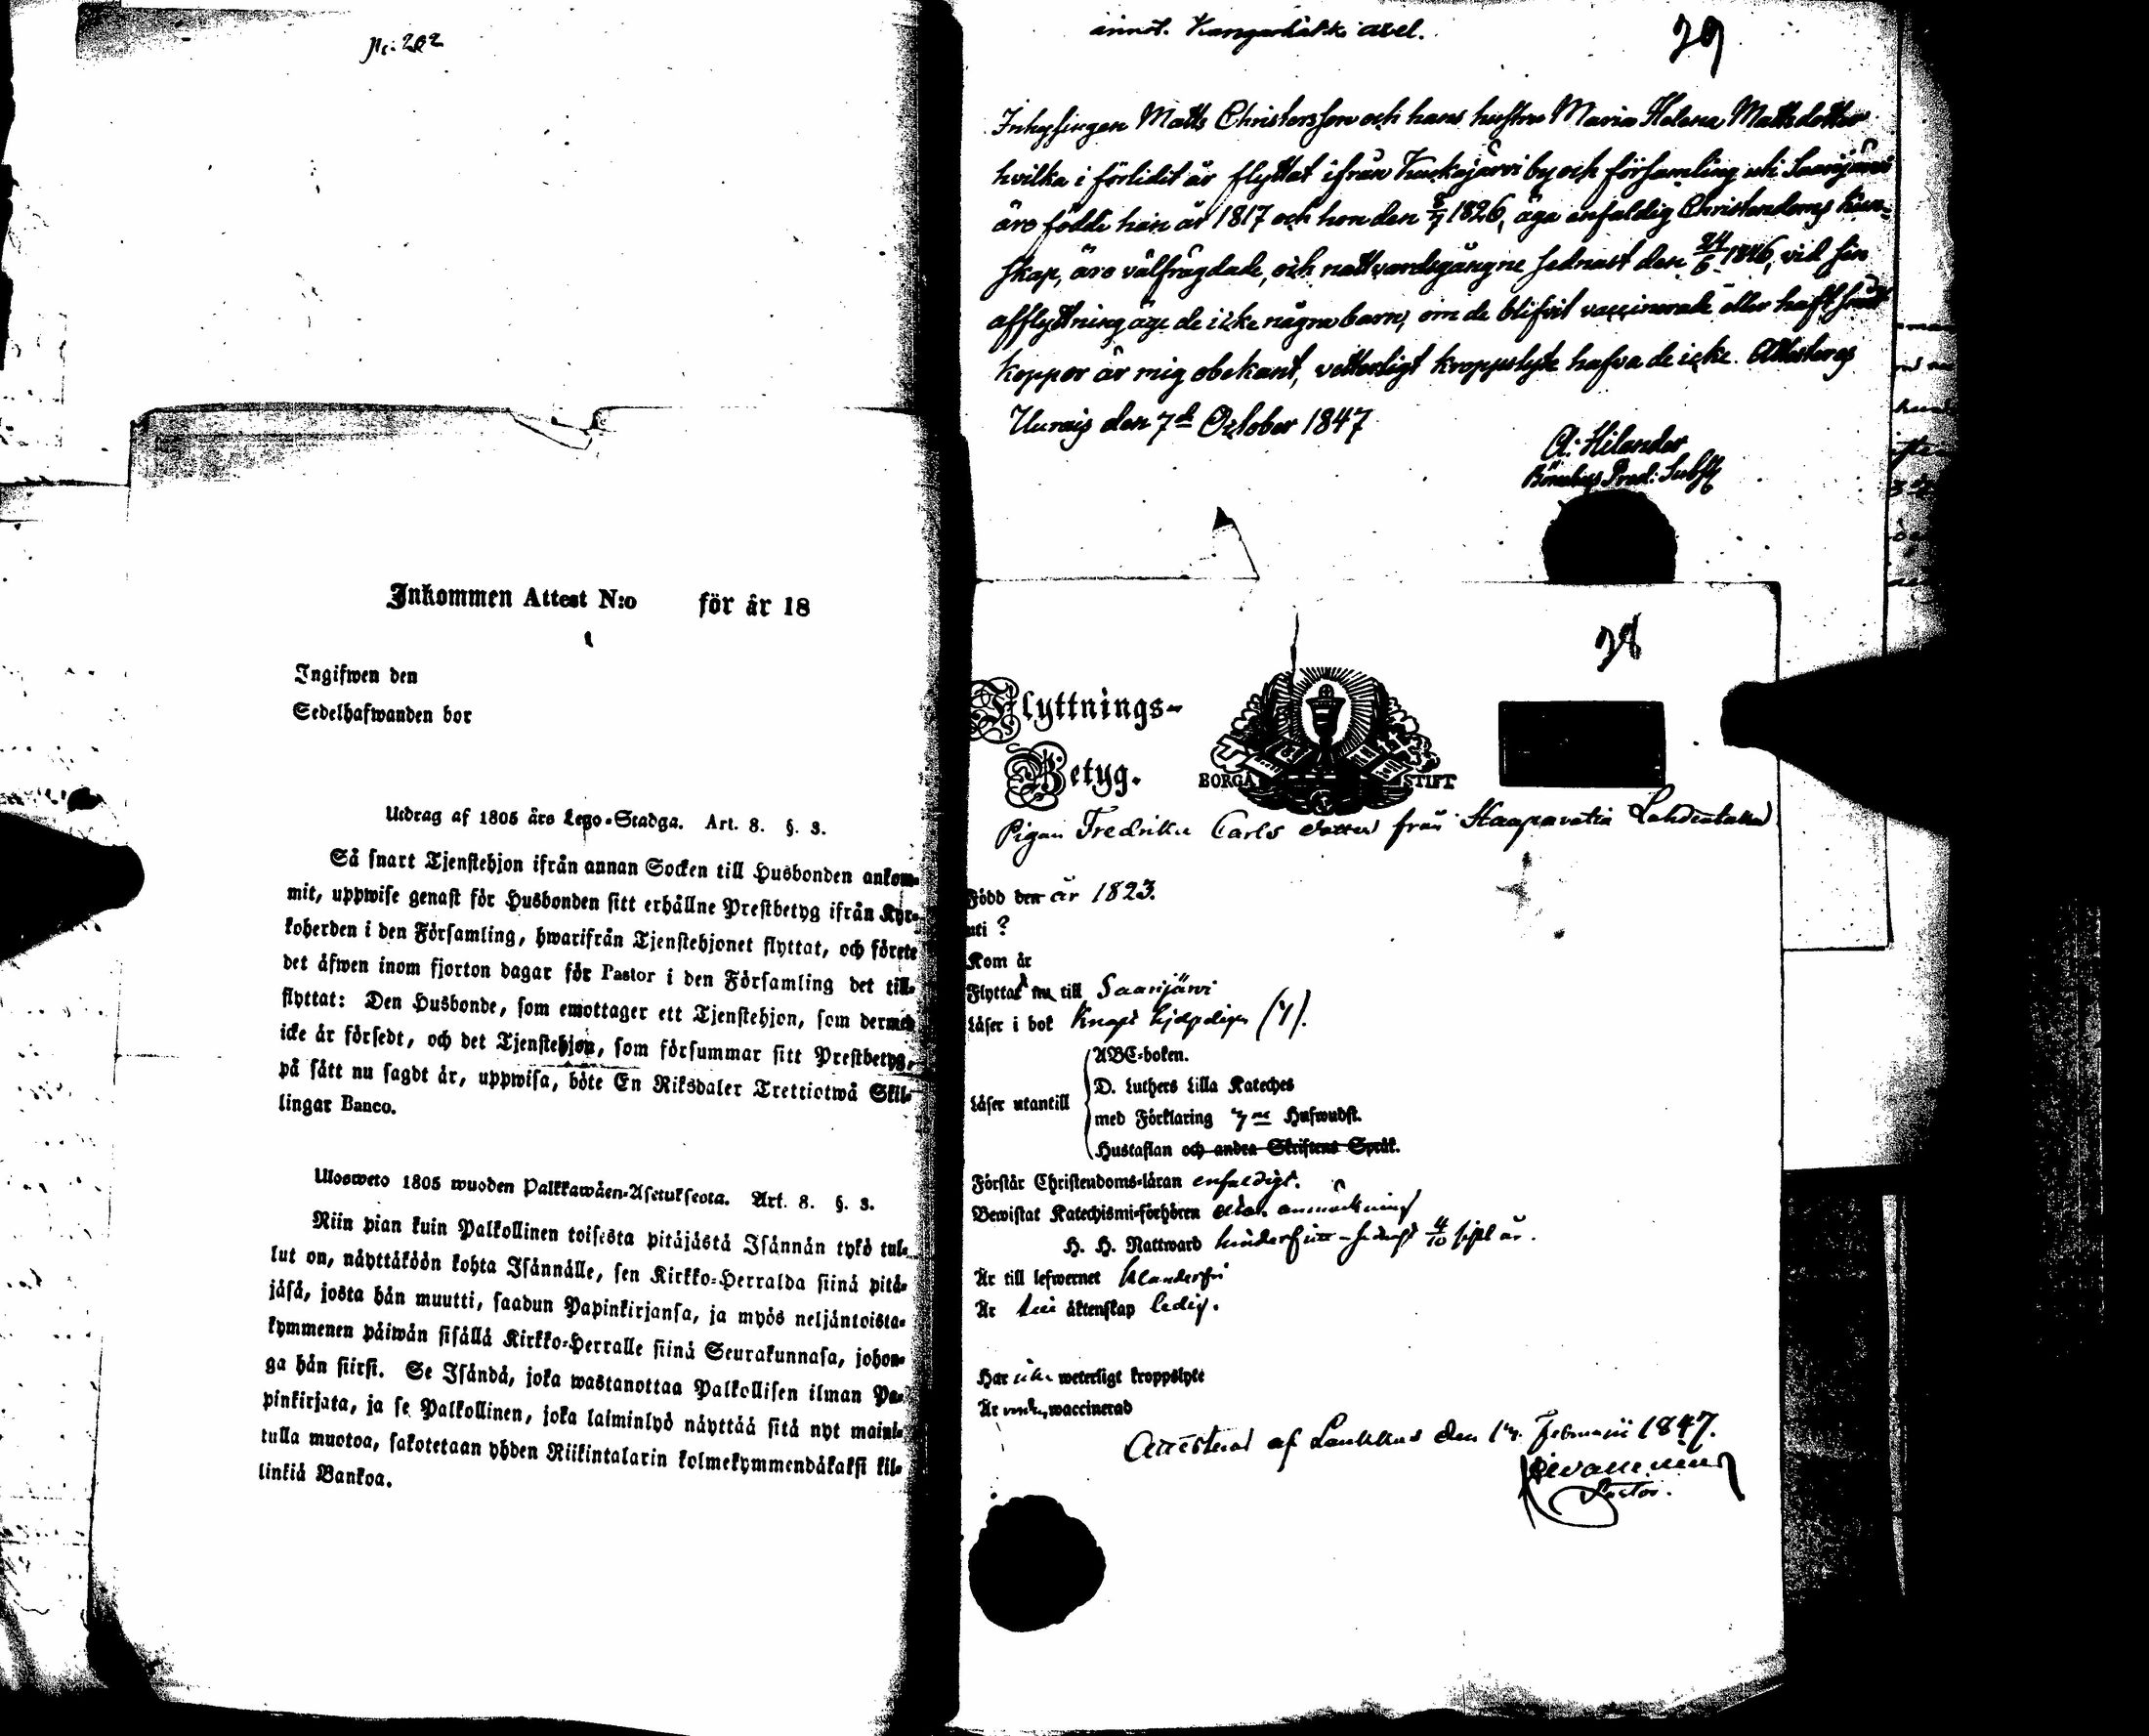 No: 202
Inkommen Attest N:o för år 18
Ingifwen den
Sedelhafwanden bor
Utdrag af 1805 års Lego-Stadga. Art. 8. §. 3.
Så snart Tjenstehjon ifrån annan Socken till Husbonden ankom-
mit, uppwise genast för Husbonden sitt erhållne Prestbetyg ifrån Kyr-
koherden i den Församling, hwarifrån Tjenstehjonet flyttat, och förete
det äfwen inom fjorton dagar för Pastor i den Församling det till-
flyttat: Den Husbonde, som emottager ett Tjenstehjon, som dermed
icke är försedt, och det Tjenstehjon, som försummar sitt Prestbetyg,
på sätt nu sagdt är, uppwisa, böte En Riksdaler Trettiotwå Skil-
lingar Banco.
Ulosweto 1805 wuoden Palkkawäen-Asetuksesta. Art. 8. §. 3.
Niin pian kuin Palkollinen toisesta pitäjästä Isännän tykö tul-
lut on, näyttäköön kohta Isännälle, sen Kirkko-Herralda siinä pitä-
jäsä, josta hän muutti, saadun Papinkirjansa, ja myös neljäntoista-
kymmenen päiwän sisällä Kirkko-Herralle siinä Seurakunnasa, johon-
ga hän siirsi. Se Isändä, joka wastanottaa Palkollisen ilman Pa-
pinkirjata, ja se Palkollinen, joka laiminlyö näyttää sitä nyt maini-
tulla muotoa, sakotetaan yhden Riikintalarin kolmekymmendäkaksi kil-
linkiä Bankoa.
29
Inhysingen Matts Christersson och hans hustru Maria Helena Mattsdotter
hvilka i förlidit år flyttat ifrån by och församling uti Saarijärvi
äro födde han år 1817 och hon den 8/7 1826, äga enfaldig Christendoms kun-
skap, äro välfrägdade, och nattvardsgångne sednast den 24/6 1846, vid sin
afflyttning äga de icke några barn, om de blifvit vaccinerade eller haft
koppor är mig obekant, vetterligt kroppslyte hafva de icke. Attesteras
Uurais den 7de October 1847
A: Hilander
28
Flyttnings-
Betyg.
BORGÅ STIFT
Pigan Fredrika Carls dotter från Haapavatia
Född den år 1823.
uti ?
Kom år
Flyttat nu till Saarijärvi
Läser i bok
Läser utantill
ABC-boken.
D. Luthers Lilla Kateches
med Förklaring Hufwudst.
Hustaflan och andra Skriftens Språk.
Förstår Christendoms-läran enfaldigt.
Bewistat Katechismi-förhören utan anmärkning
H. H. Nattward 4/10 sistl år.
Är till lefwernet klanderfri
Är till äktenskap ledig.
Har icke weterligt kroppslyte
Är waccinerad
Attesterad af Laukkas den Februarii 1847.
Pastor.